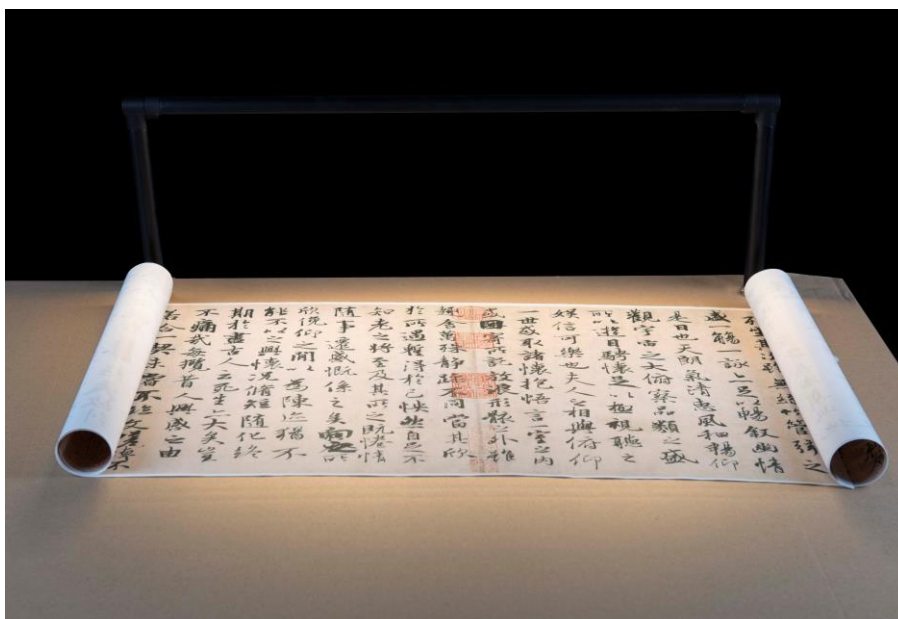 列坐其次雖無絲竹管弦之
盛一觴一詠亦足以暢叙幽情
是日也天朗氣清惠風和暢仰
觀宇宙之大俯察品類之盛
所以遊目騁懷足以極視聽之
娛信可樂也夫人之相與俯仰
一世或取諸懷抱悟言一室之內
或因寄所託放浪形骸之外雖
趣舍萬殊靜躁不同當其欣
於所遇暫得於己怏然自足不
知老之將至及其所之既惓情
隨事遷感慨係之矣向之所
欣俛仰之閒以為陳迹猶不
能不以之興懷況脩短隨化終
期於盡古人云死生亦大矣豈
不痛哉每攬昔人興感之由
若合一契未嘗不臨文嗟悼不